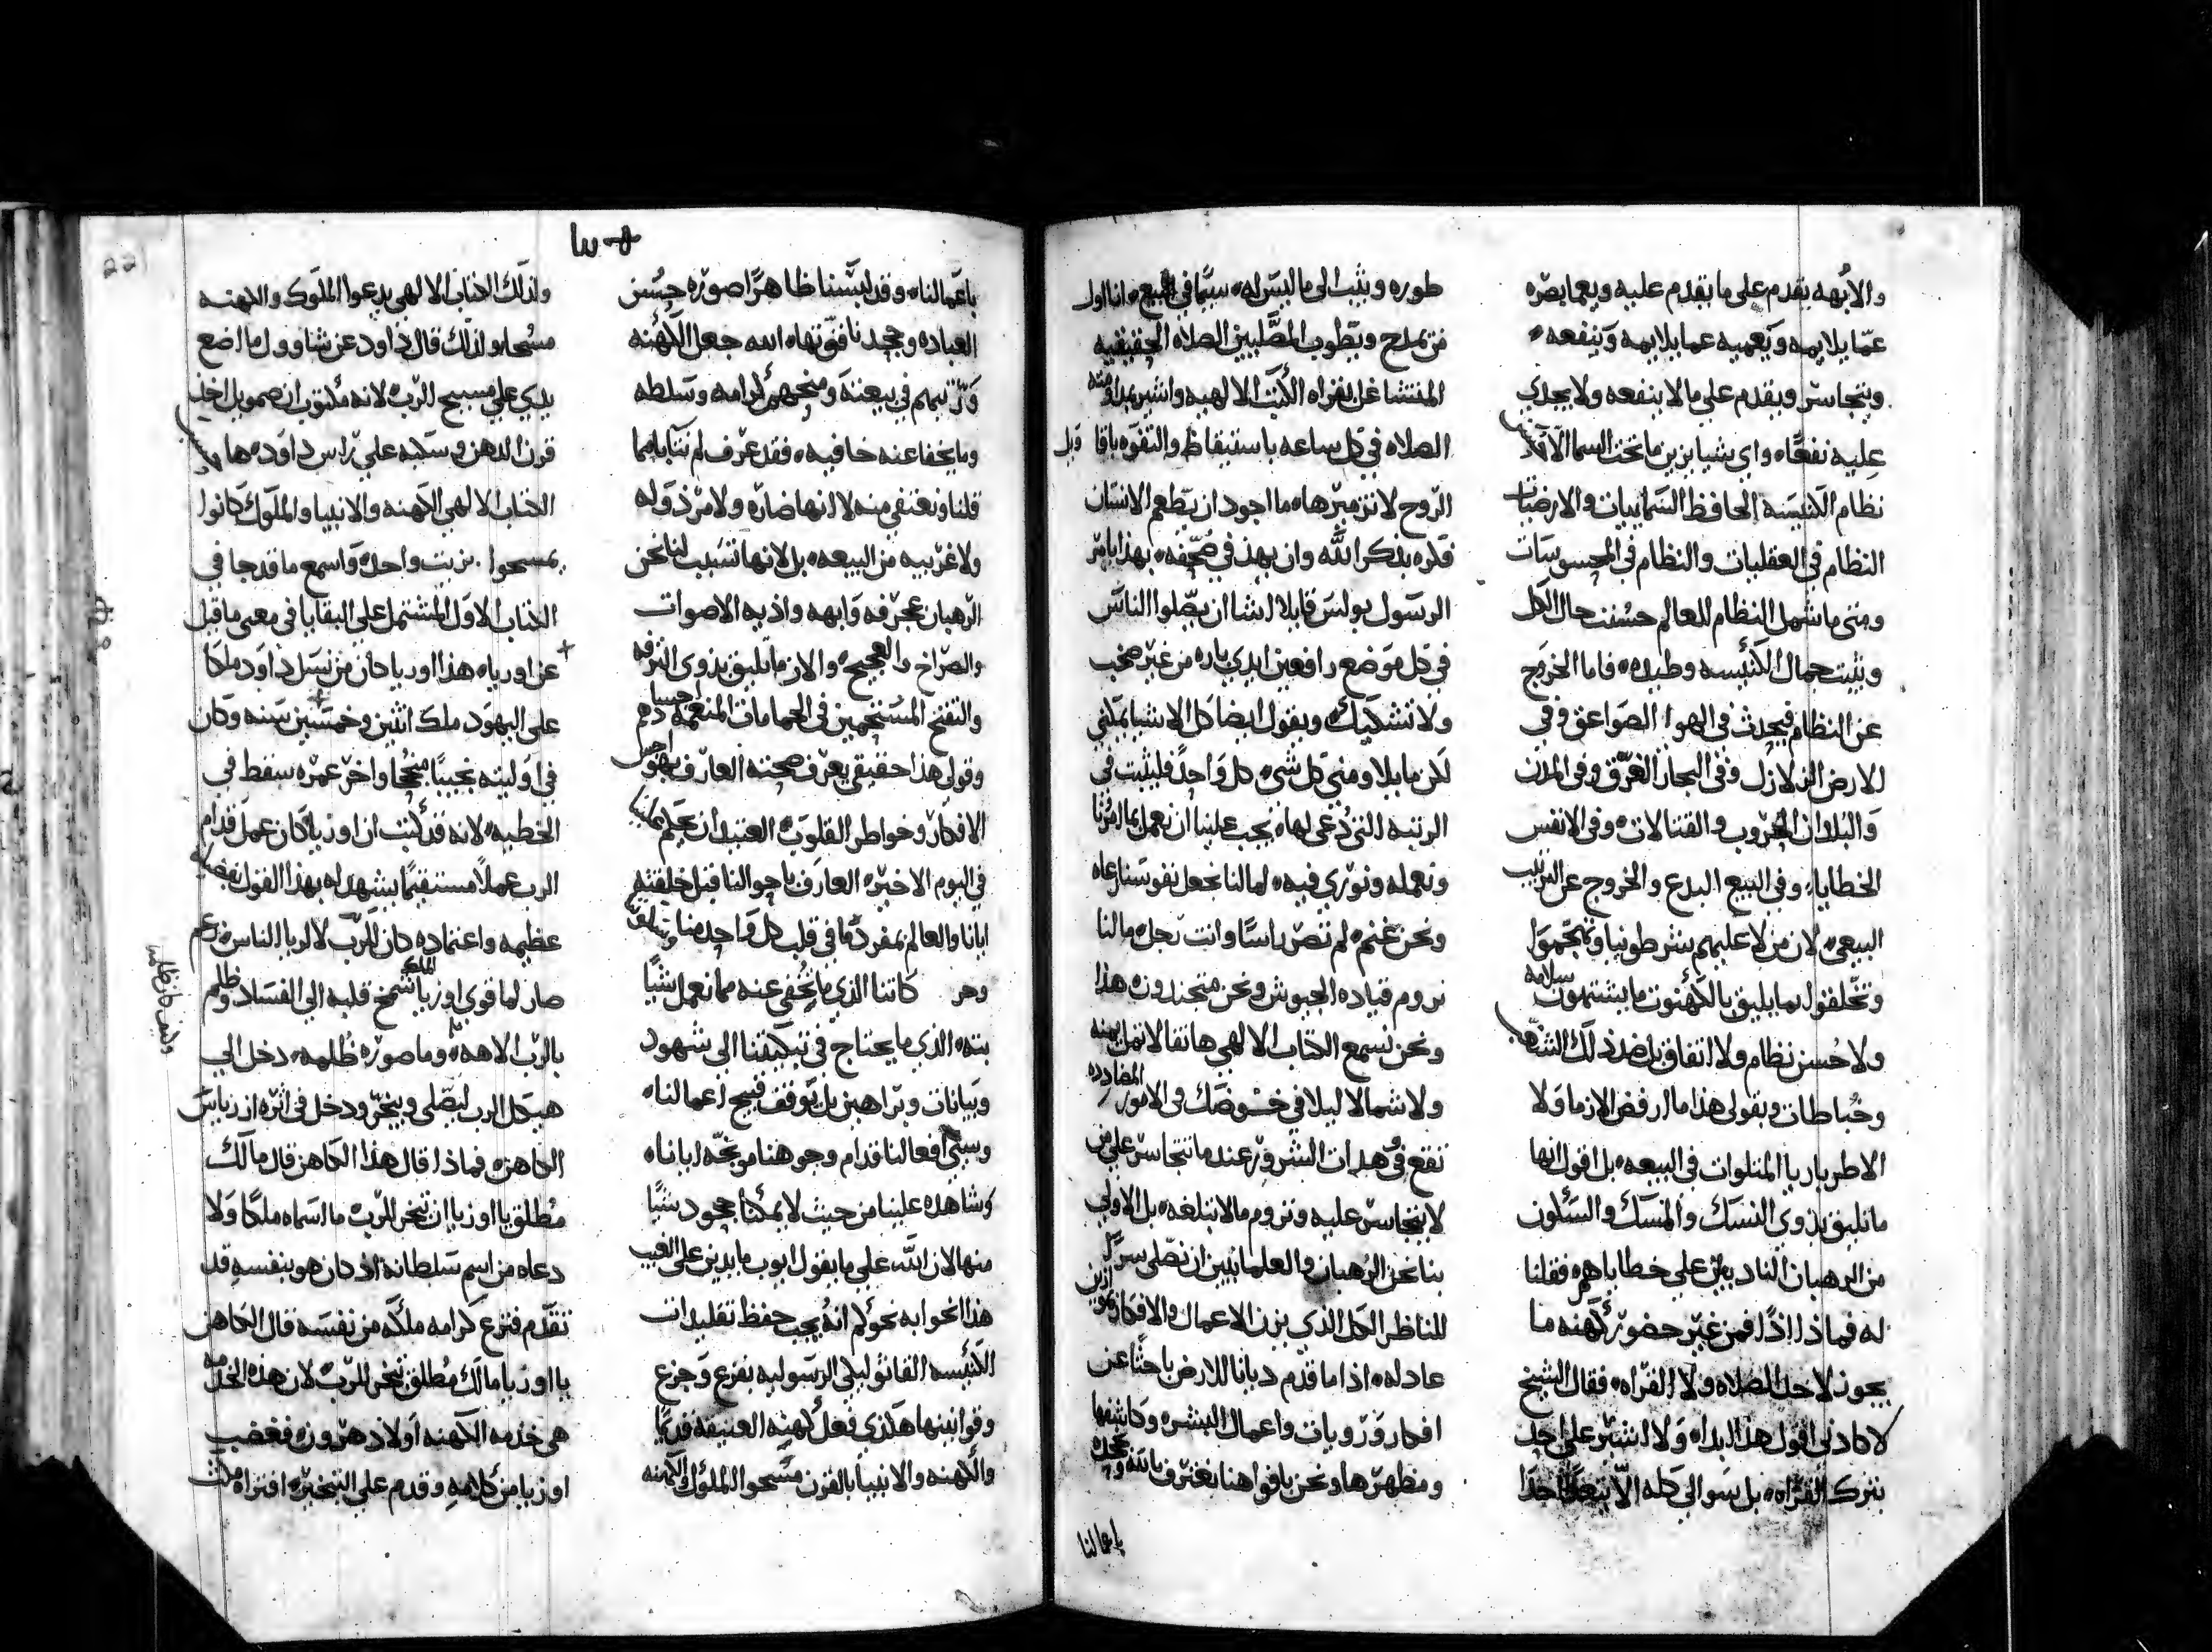 والابهه يقدم على ما يقدم عليه ويعما بضره
عما يلايمه ويعميه عما يلايمه وينفعه
ويتجاسر ويقدم على مالا ينفعه ولا يجدي
عليه نفعًا واي شيا يزين ما تحت السما الا
نظام الكنيسه الحافظ السماييات والارضيات
النظام في العقليات والنظام في المحسوسات
ومتى ما شمل النظام للعالم حسنت حال الكل
ويثبت جمال الكنيسه وطيده فاما الخروج
عن النظام فيحدث في الهوا الصواعق وفي
الارض الزلازل وفي البحار الغرق وفي المدن
والبلدان الحروب والقتالات وفي الانفس
الخطايا وفي البيع البدع والخروج عن الترتيب
البيعي لان من لا عليهم بشرطونيا وتهجموا
وتخلقوا بما يليق بالكهنوت ما يشتمون سلامه
ولا حسن نظام ولا اتفاق بل ضد ذلك
وخباطات وبقولي هذا ما ارفض الازما ولا
الاطرباريا المتلوات في البيعه بل اقول انها
ما تليق بذوي النسك والمنسك والسكون
من الرهبان النادبين على خطاياهم فقلنا
له فماذا اذًا فمن غير حضور كهنه ما
يجوز لاجل الصلاه ولا القراه فقال الشيخ
لا كادني اقول هذا البداه ولا اشير على احد
بترك القراه بل سوالي كله الا يتعدا احدا
طوره ويثب الى ما ليس له سيما في البيع انا اول
من يمدح ويطوب المصليين الصلاه الحقيقيه
المنتشاغل بقراه الكتب الالهيه واشير بمداومه
الصلاه في كل ساعه باستيقاظ والتفوه باقا ويل
الروح لا تزميرها ما اجود ان يطعم الانسان
فكره بذكر الله وان يهذ في صحفه بهذا يامر
الرسول بولس قايلا اشا ان يصلوا الناس
في كل موضع رافعين ايدي باره من غير صخب
ولا تشكيك ويقول ايضا كل الاشيا يمكنني
لكن ما يلاومني كل شي كل واحد فليثبت في
الرتبه التي دعي لها يجب علينا ان نعمل بما امرنا
ونعمله ونوري فيه لمالنا نجعل نفوسنا رعاه
ونحن غنم لم نصر راسًا وانت رجل مالنا
نروم قياده الجيوش ونحن متجندون هذا
ونحن نسمع الكتاب الالهي هاتفا لا تمل يمنه
ولا شمالا ليلا في خوضك في الامور المضادده
نقع في وهدات الشرور عندما نتجاسر على من
لا يتجاسر عليه ونروم مالا نبلغه بل الاولى
بنا نحن الرهبان والعلمانيين ان نصلي سرًا
للناظر الكل الذي يزن الاعمال والافكار
عادله اذا ما قدم ديانا للارض باحثًا عن
افكار ورويات واعمال البشر وكاشفها
ومظهرها ونحن بافواهنا نعترف بالله
باعمالنا
باعمالنا وقد لبسنا ظاهرًا صوره حسن
العباده وجحدنا قوتها الله جعل الكهنه
ورتبهم في بيعته ومنحهم كرامه وسلطه
وما يخفا عنه خافيه فقد عرف لم نتابا مما
قلنا ونعتفي منه لا انها ضاره ولا مرذوله
ولا غريبه من البيعه بل لانها تسبب لنا نحن
الرهبان عجرفه وابهه واذيه الاصوات
والصراخ والعجيج والان ما تليق بذوي الترفه
والتفتح المستحمين في الحمامات المنعمه
وقولي هذا حقيقي يعرف صحته العارف
الافكار وخواطر القلوب العتيد ان يحكم
في اليوم الاخير العارف باحوالنا قبل خلقته
ايانا والعالم بمفرده ما في قلب كل واحد منا
وهر كاتنا الذي ما يخفى عنه مما نعمل شيًا
بته الذي ما يحتاج في تبكيتنا الى شهود
وبيانات وبراهين بل يوقف قبيح اعمالنا
وسيئ افعالنا قدام وجوهنا موبخه ايانا
وشاهده علينا من حيث لا يمكنا جحود شيًا
منها لان الله على ما يقول ايوب ما يدين على الغيب
هذا نحوا به نحوكم انه يجب حفظ تقليدات
الكنيسه القاثوليكي الرسوليه بفزع وجزع
وقوانينها هكذي فعل كهنه العتيقه قديمًا
والكهنه والانبيا بالقرن مسحوا الملوك والكهنه
ولذلك الكتاب الالهي يدعوا الملوك والكهنه
مسحا ولذلك قال داود عن شاوول ما اضع
يدي على مسيح الرب لانه مكتوب ان صمويل اخذ
قرن الدهن وسكبه على راس داود ها
الكتاب الالهي الكهنه والانبيا والملوك كانوا
يمسحوا بزيت واحد واسمع ما قد جا في
الكتاب الاول المشتمل على البقايا في معنى ما قيل
عن اوريا هذا اوريا كان من نسل داود ملكًا
على اليهود ملك اثنين وخمسين سنه وكان
في اوليته نجيبًا منجحًا واخر عمره سقط في
الخطيه لانه قد كتب ان اوزيا كان عمل قدام
الرب عملاً مستقيمًا يشهد له بهذا القول
عظيمه واعتماده كان للرب لا لريا الناس زعم
صار لما قوي اوزيا الملك شمخ قلبه الى الفساد وظلم
بالرب الاهه وما صوره ظلمه دخل الى
هيكل الرب ليصلي ويبخر ودخل في اثره ازرياس
الكاهن فماذا قال هذا الكاهن قال مالك
مطلق يا اوزيا ان تبخر للرب ما اسماه ملكًا ولا
دعاه من اسم سلطانه اذ كان هو بنفسه قد
تقدم فنزع كرامه ملكه من نفسه قال الكاهن
يا اوزيا مالك مطلق تبخر للرب لان هذه الخدمه
هي خدمه الكهنه اولاد هرون فغضب
اوزيا من كلامه وقدم على التبخير افتراه
وكيف كان ظلمه
221